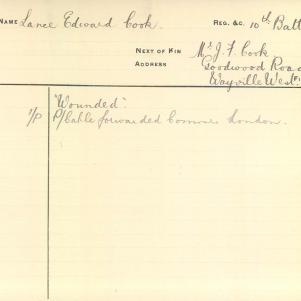 NAME Lance Edward Cook. REG. &C. 10th Batt
NEXT OF KIN Mr J. F. Cook
ADDRESS Goodwood Road
Wayville West
"Wounded"
P/Cable forwarded Comms London.